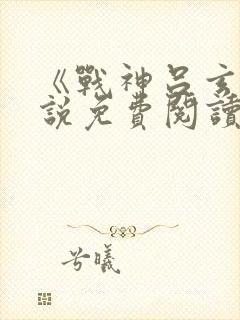 《戰神呂玄
說免費閱讀
兮曦